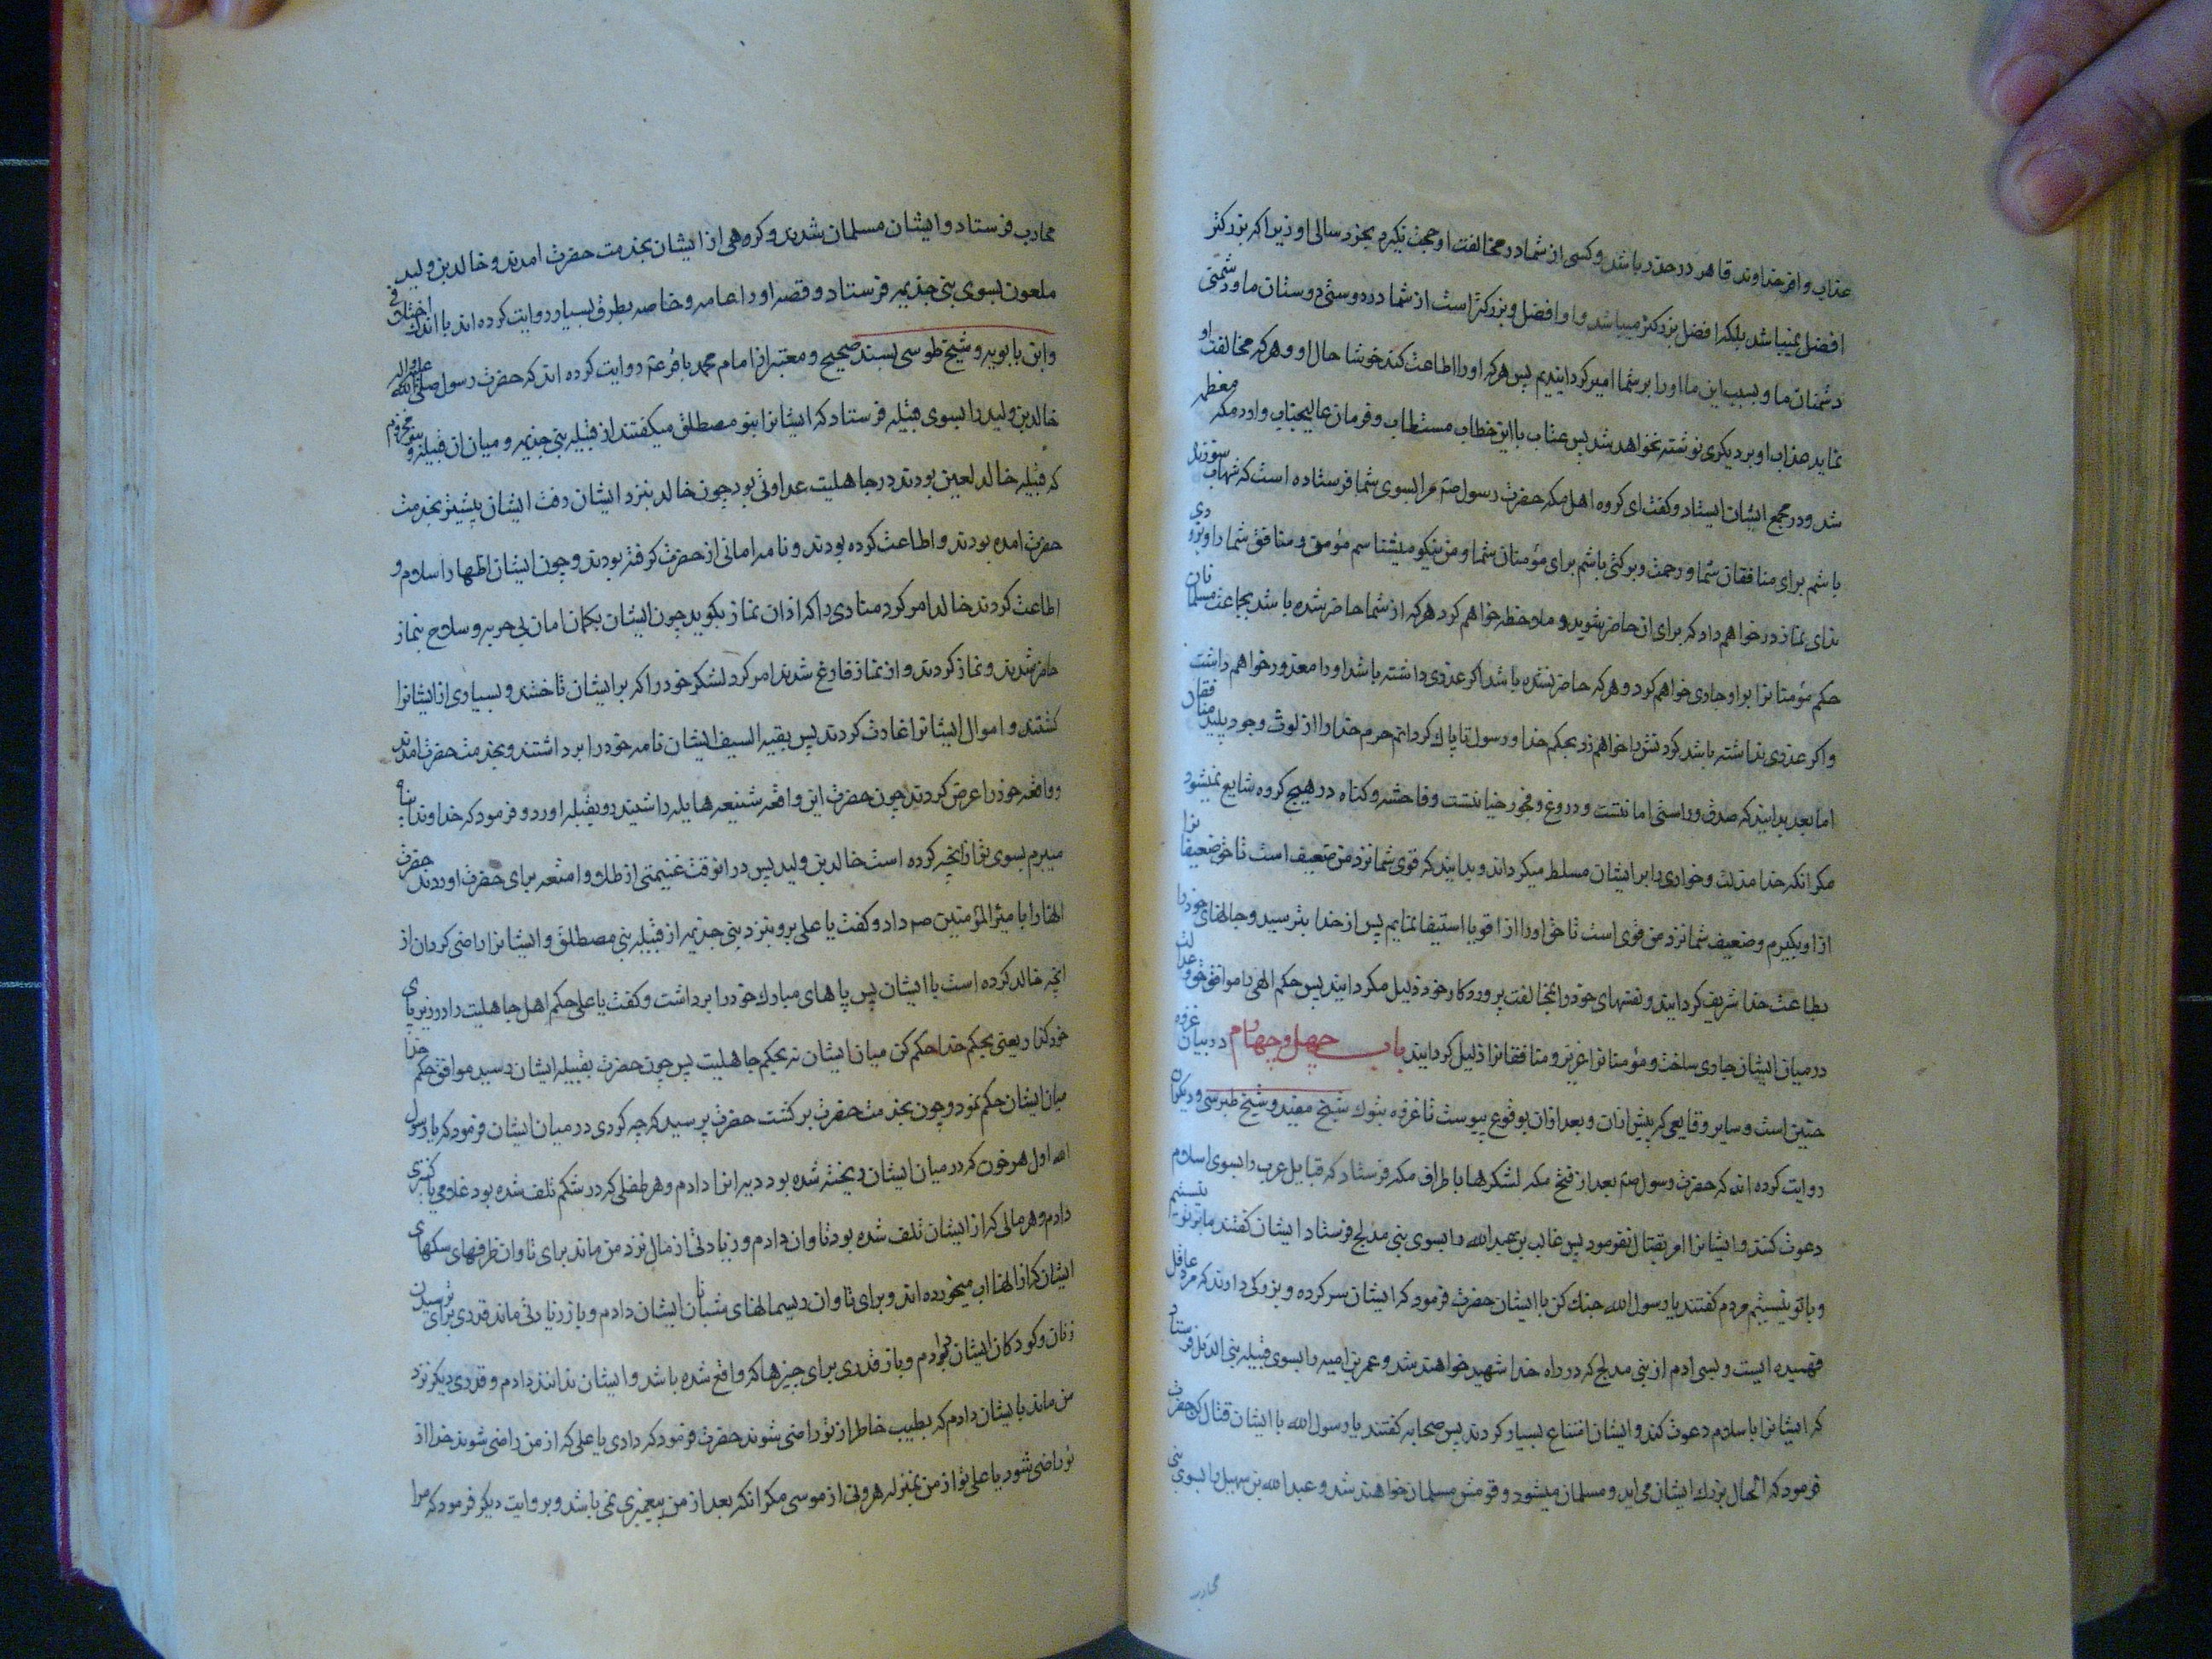 عذاب و امر خداوند قاهر در حذر باشد و کسی از شما در مخالفت او حجت نکیرد بخرد سالی او زیرا که بزرکتر
افضل نمیباشد بلکه افضل بزرکتر میباشد و او افضل و بزرکتر است از شما در دوستی دوستان ما و دشمنی
دشمنان ما و بسبب این ما او را بر شما امیر کردانیدیم پس هر که او را اطاعت کند خوشا حال او و هر که مخالفت او
نماید عذاب او بر دیکری نوشته نخواهد شد پس عتاب با این خطاب مستطاب و فرمان عالیجناب وارد مکه معظمه
شد و در مجمع ایشان ایستاد و کفت ای کروه اهل مکه حضرت رسول صم مرا بسوی شما فرستاده است که شهاب سوزنده
باشم برای منافقان شما و رحمت و برکتی باشم برای مؤمنان شما و من نیکو میشناسم مؤمن و منافق شما را و بزودی
ندای نماز در خواهم داد که برای ان حاضر شوید و ملاحظه خواهم کرد هر که از شما حاضر شده باشد بجماعت مسلمانان
حکم مؤمنانرا بر او جاری خواهم کرد و هر که حاضر نشده باشد اکر عذری داشته باشد او را معذور خواهم داشت
و اکر عذری نداشته باشد کردنش را خواهم زد بحکم خدا و رسول تا پاک کردانم حرم خدا را از لوث وجود پلید منافقان
اما بعد بدانید که صدق و راستی امانتست و دروغ و فجور خیانتست و فاحشه و کناه در هیچ کروه شایع نمیشود
مکر انکه خدا مذلت و خواری را بر ایشان مسلط میکرداند و بدانید که قوی شما نزد من ضعیف است تا حق ضعیفانرا
از او بکیرم و ضعیف شما نزد من قوی است تا حق او را از اقویا استیفا نمایم پس از خدا بترسید و جانهای خود را
بطاعت خدا شریف کردانید و نفسهای خود را بمخالفت پروردکار خود ذلیل مکردانید پس حکم الهی را موافق حق و عدالت
در میان ایشان جاری ساخت و مؤمنانرا عزیز و منافقانرا ذلیل کردانید باب چهل و چهارم در بیان غزوه
حنین است و سایر وقایعی که پیش ازان و بعد ازان بوقوع پیوست تا غزوه تبوک شیخ مفید و شیخ طبرسی و دیکران
روایت کرده اند که حضرت رسول صم بعد از فتح مکه لشکرها باطراف مکه فرستاد که قبایل عرب را بسوی اسلام
دعوت کنند و ایشانرا امر بقتال نفرمود پس غالب بن عبد الله را بسوی بنی مدلج فرستاد ایشان کفتند ما بر تو نیستیم
و با تو نیستیم مردم کفتند یا رسول الله جنک کن با ایشان حضرت فرمود که ایشان سرکرده و بزرکی دارند که مرد عاقل
فهمیده ایست و بسی ادم از بنی مدلج که در راه خدا شهید خواهند شد و عمر بن امیه را بسوی قبیله بنی الدیل فرستاد
که ایشانرا باسلام دعوت کند و ایشان امتناع بسیار کردند پس صحابه کفتند یا رسول الله با ایشان قتال کن حضرت
فرمود که الحال بزرک ایشان می اید و مسلمان میشود و قومش مسلمان خواهند شد و عبد الله بن سهیل را بسوی بنی
محارب
محارب فرستاد و ایشان مسلمان شدند و کروهی از ایشان بخدمت حضرت امدند و خالد بن ولید
ملعون بسوی بنی جذیمه فرستاد و قصه او را عامه و خاصه بطرق بسیار روایت کرده اند با اندک اختلافی
و ابن بابویه و شیخ طوسی بسند صحیح و معتبر از امام محمد باقر ع م روایت کرده اند که حضرت رسول صلی الله علیه و اله
خالد بن ولید را بسوی قبیله فرستاد که ایشانرا بنو مصطلق میکفتند از قبیله بنی جذیمه و میان ان قبیله و بنو مخزوم
که قبیله خالد لعین بودند در جاهلیت عداوتی بود چون خالد بنزد ایشان رفت ایشان پیشتر بخدمت
حضرت امده بودند و اطاعت کرده بودند و نامه امانی از حضرت کرفته بودند و چون ایشان اظهار اسلام و
اطاعت کردند خالد امر کرد منادی را که اذان نماز بکوید چون ایشان بکمان امان بی حربه و سلاح بنماز
حاضر شدند و نماز کردند و از نماز فارغ شدند امر کرد لشکر خود را که بر ایشان تاختند و بسیاری از ایشانرا
کشتند و اموال ایشانرا غارت کردند پس بقیه السیف ایشان نامه خود را برداشتند و بخدمت حضرت امدند
و واقعه خود را عرض کردند چون حضرت این واقعه شنیعه هایله را شنید رو بقبله اورد و فرمود که خداوندا پناه
میبرم بسوی تو از انچه کرده است خالد بن ولید پس در انوقت غنیمتی از طلا و امتعه برای حضرت اوردند حضرت
انها را بامیر المؤمنین صم داد و کفت یا علی برو بنزد بنی جذیمه از قبیله بنی مصطلق و ایشانرا راضی کردان از
انچه خالد کرده است با ایشان پس پاهای مبارک خود را برداشت و کفت یا علی حکم اهل جاهلیت را در زیر پای
خود کذار یعنی بحکم خدا حکم کن میان ایشان نه بحکم جاهلیت پس چون حضرت بقبیله ایشان رسید موافق حکم خدا
میان ایشان حکم نمود و چون بخدمت حضرت برکشت حضرت پرسید که چه کردی در میان ایشان فرمود که یا رسول
الله اول هر خون که در میان ایشان ریخته شده بود دیه انرا دادم و هر طفلی که در شکم تلف شده بود غلامی یا کنیزی
دادم و هر مالی که از ایشان تلف شده بود تاوان دادم و زیادتی از مال نزد من ماند برای تاوان ظرفهای سکهای
ایشان که از انها اب میخورده اند و برای تاوان ریسمانهای شبانان ایشان دادم و باز زیادتی ماند قدری برای ترسیدن
زنان و کودکان ایشان دادم و باز قدری برای چیزها که واقع شده باشد و ایشان ندانند دادم و قدری دیکر نزد
من ماند بایشان دادم که بطیب خاطر از تو راضی شوند حضرت فرمود که دادی یا علی که از من راضی شوند خدا از
تو راضی شود یا علی تو از من بمنزله هرونی از موسی مکر انکه بعد از من پیغمبری نمی باشد و بروایت دیکر فرمود که مرا